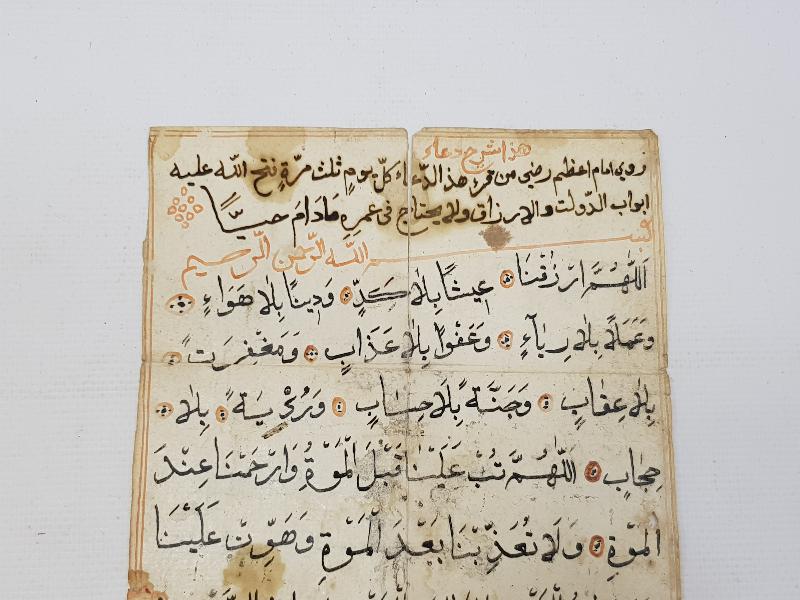 هذا شرح دعاء
روى امام اعظم رضى من قرء هذ الدّعاء كلّ يومٍ ثلث مرّةٍ فتح اللّه عليه
ابواب الدّولت والارزاق ولا يحتاج فى عمرهِ مَادَامَ حيًّا
بسم اللّه الرّحمن الرّحيم
اَللّٰهُمَّ ارْزُقْنَا عيشًا بِلَا كَدٍّ وَدِينًا بِلَا هَوَاءٍ
وَعَمَلًا بِلَا رِيَآءٍ وَعَفْوًا بِلَا عَذَابٍ وَمَغْفِرَتً
بِلَا عِقَابٍ وَجَنَّةً بِلَا حِسَابٍ وَرُؤْيَةً بِلَا
حِجَابٍ اَللّٰهُمَّ تُبْ عَلَيْنَا قَبْلَ الْمَوْةِ وَارْحَمْنَا عِنْدَ
الْمَوْةِ وَلَا تُعَذِّبْنَا بَعْدَ الْمَوْةِ وَهَوِّنْ عَلَيْنَا